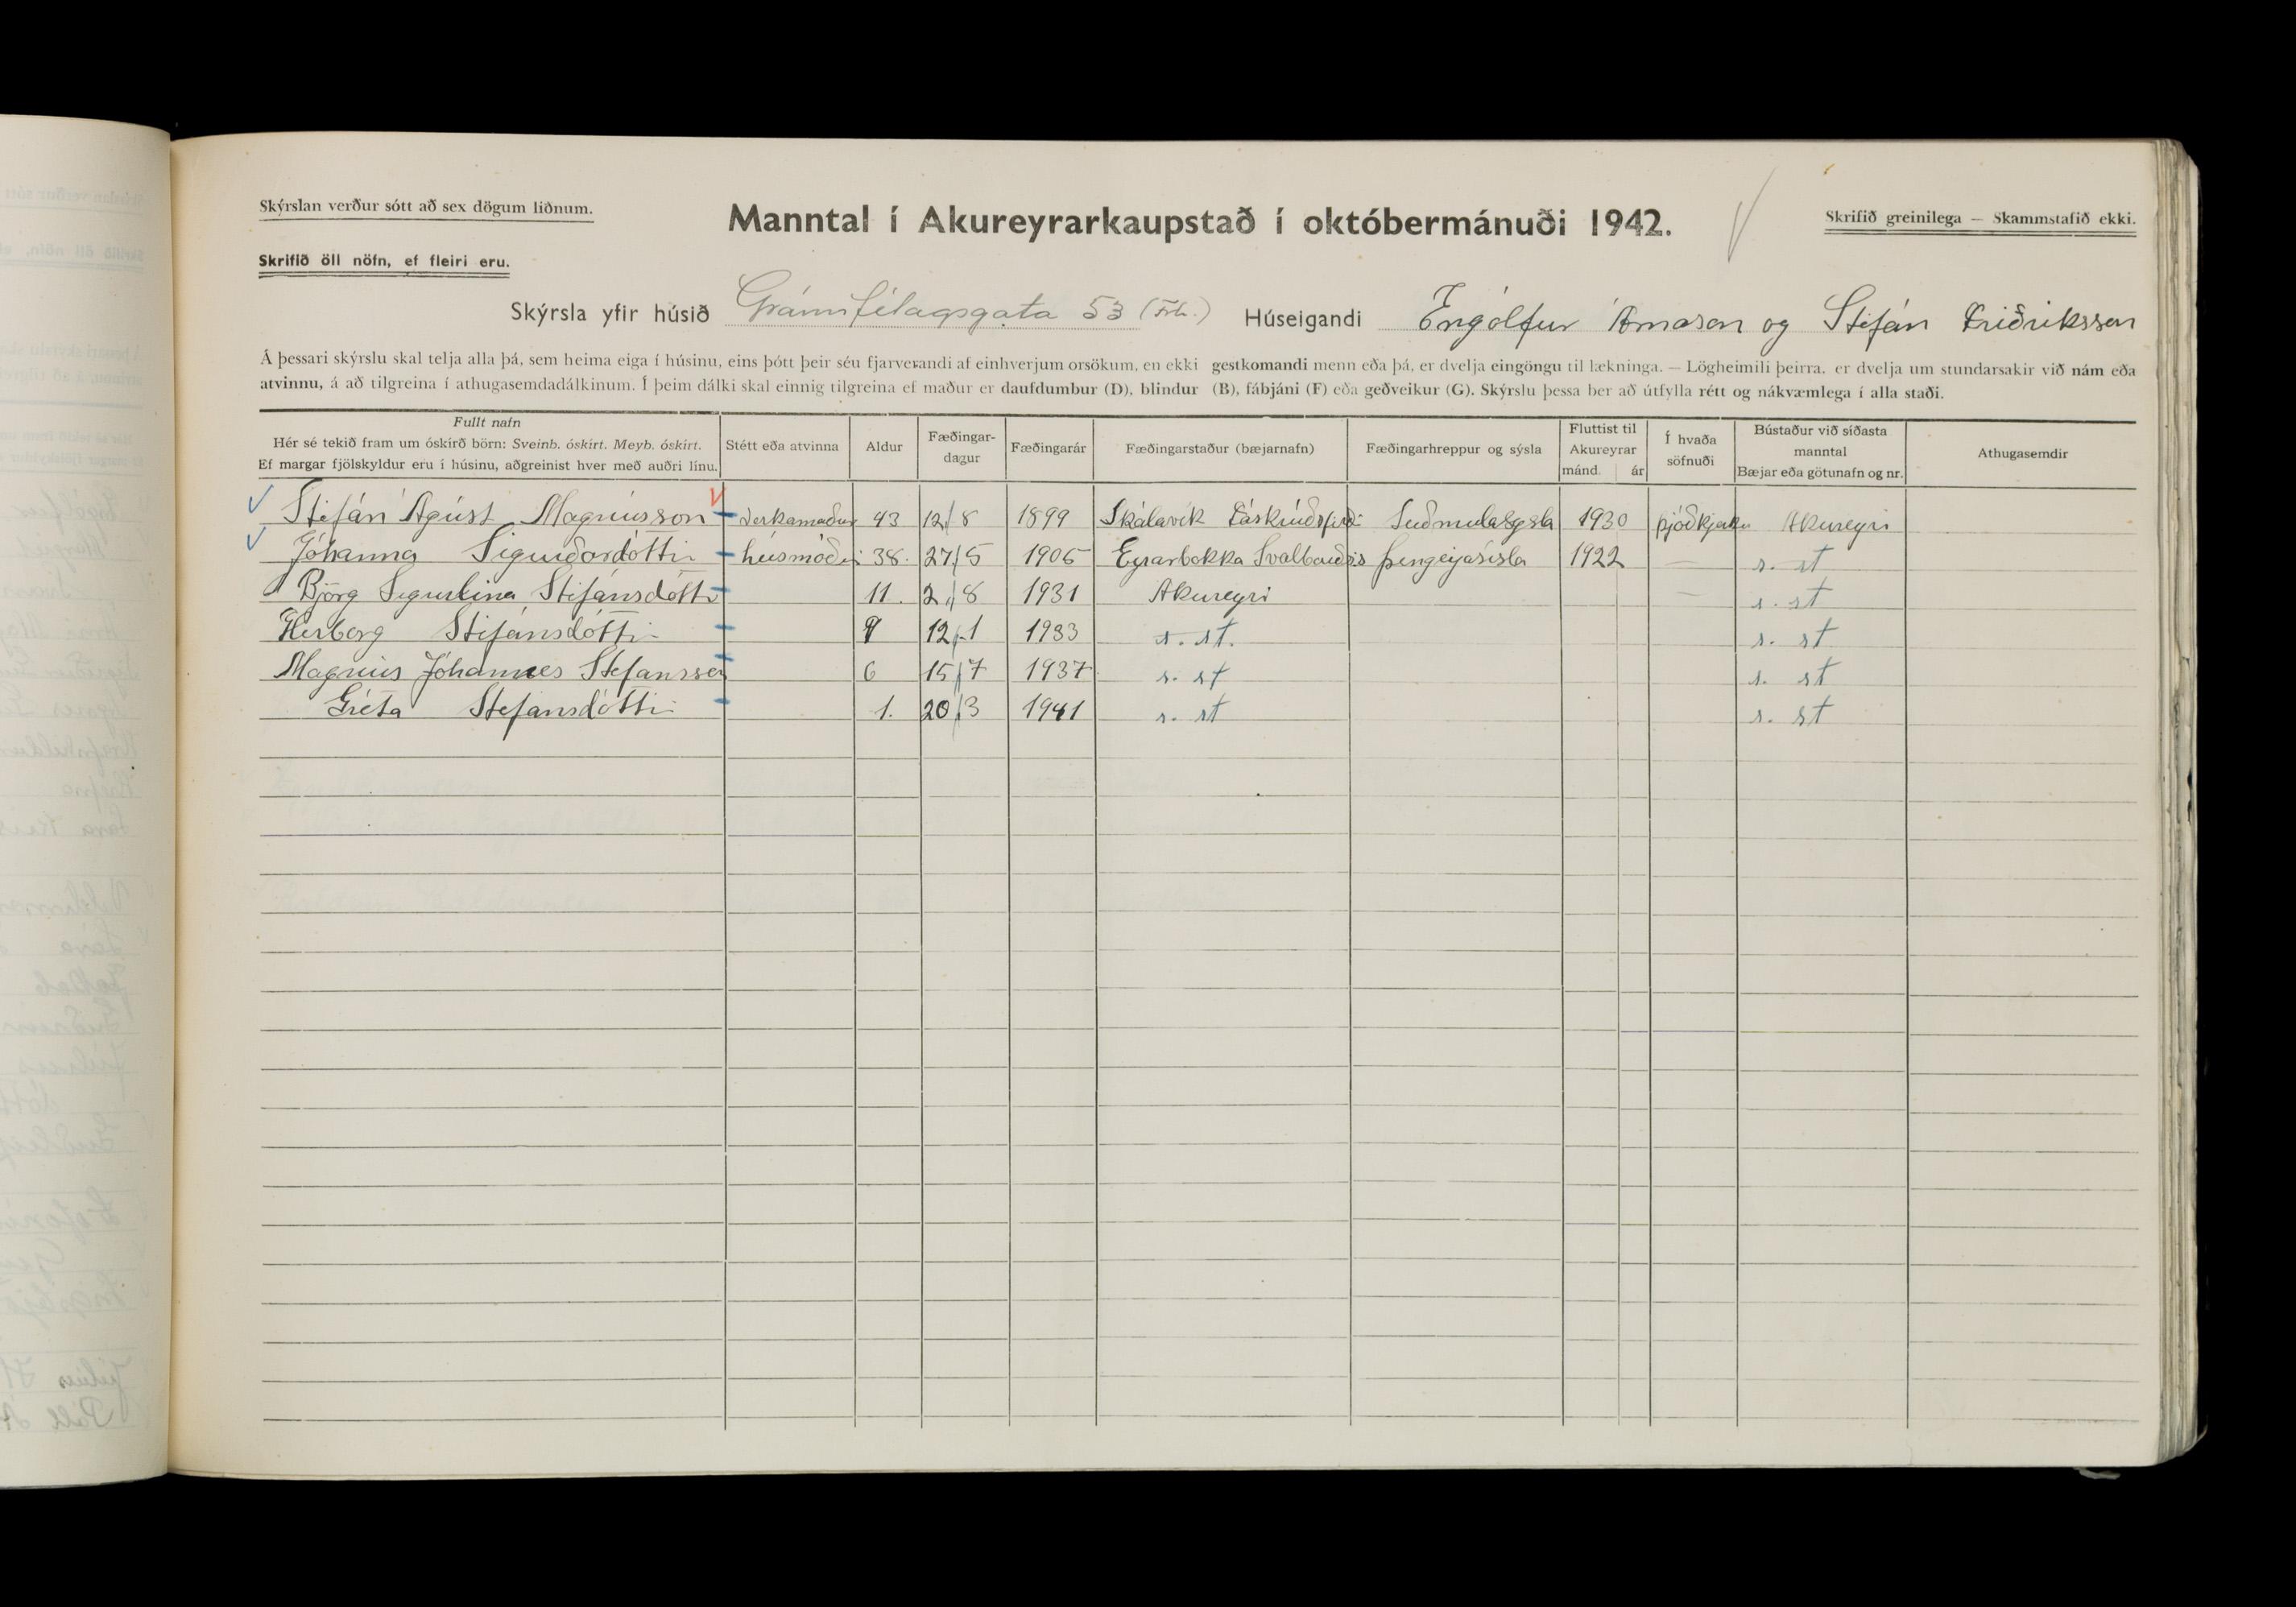 Skýrslan verður sótt að sex dögum liðnum.
Manntal í Akureyrarkaupstað í októbermánuði 1942.
Skrifið greinilega — Skammstafið ekki.
Skrifið öll nöfn, ef fleiri eru.
Skýrsla yfir húsið Gránufélagsgata 53 (frh.) Húseigandi Engólfur Árnason og Stefán Friðriksson
Á þessari skýrslu skal telja alla þá, sem heima eiga í húsinu, eins þótt þeir séu fjarverandi af einhverjum orsökum, en ekki gestkomandi menn eða þá, er dvelja eingöngu til lækninga. — Lögheimili þeirra, er dvelja um stundarsakir við nám eða
atvinnu, á að tilgreina í athugasemdadálkinum. Í þeim dálki skal einnig tilgreina ef maður er daufdumbur (D), blindur (B), fábjáni (F) eða geðveikur (G). Skýrslu þessa ber að útfylla rétt og nákvæmlega í alla staði.
Fullt nafn
Hér sé tekið fram um óskírð börn: Sveinb. óskírt. Meyb. óskírt.
Ef margar fjölskyldur eru í húsinu, aðgreinist hver með auðri línu.
Stétt eða atvinna
Aldur
Fæðingar-
dagur
Fæðingarár
Fæðingarstaður (bæjarnafn)
Fæðingarhreppur og sýsla
Fluttist til
Akureyrar
mánd. ár
Í hvaða
söfnuði
Bústaður við síðasta
manntal
Bæjar eða götunafn og nr.
Athugasemdir
Stefán Ágúst Magnússon verkamaður 43 12/8 1899 Skálavík Fáskrúðsfirði Suðmulasysla 1930 þjóðkjrku Akureyri
Jóhanna Sigurðardóttir húsmóðir 38. 27/5 1905 Eyrarbakka Svalbarðs þingeyjasísla 1922 — s. st
Björg Sigurlina Stefánsdóttir 11. 2/8 1931 Akureyri — s. st
Herborg Stefánsdóttir 9 12/1 1933 s. st. s. st
Magnús Jóhannes Stefansson 6 15/7 1937 s. st s. st
Gréta Stefansdóttir 1. 20/3 1941 s. st s. st